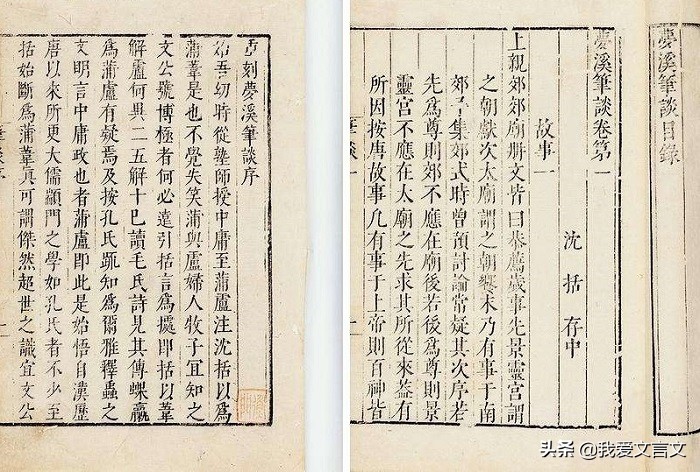 夢溪筆談目錄
夢溪筆談卷第一
沈括存中
故事一
上親郊郊廟冊文皆曰恭薦歲事先景靈宮謂
之朝獻次太廟謂之朝饗末乃有事于南
郊予集郊式時曾預討論常疑其次序若
先為尊則郊不應在廟後若後為尊則景
靈宮不應在太廟之先求其所從來蓋有
所因按唐故事凡有事于上帝則百神皆
刻夢溪筆談序
始吾幼時從塾師授中庸至蒲盧注沈括以為
蒲葦是也不覺失笑蒲與盧婦人牧子宜知之
文公號博極者何必遠引括言為據即括以葦
解盧何異二五解十巳讀毛氏詩見其傳螺蠃
為蒲盧有疑焉及按孔氏䟽知為爾雅釋蟲之
文明言中庸政也者蒲盧即此是始悟自漢歷
唐以來所更大儒顓門之學如孔氏者不少至
括始斷為蒲葦真可謂傑然超世之識宜文公
头条 @我爱文言文